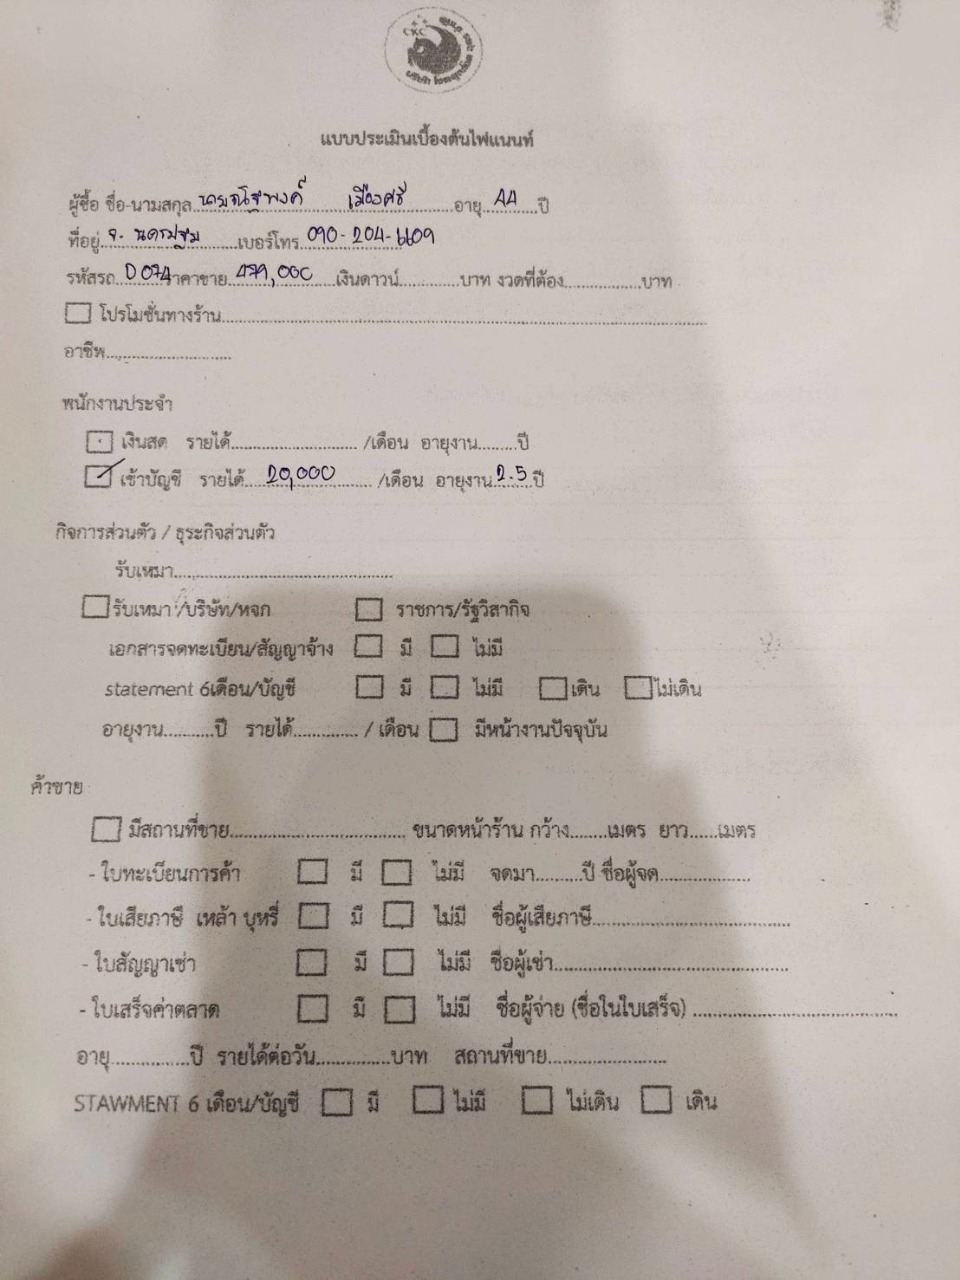 CKC
แบบประเมินเบื้องต้นไฟแนนท์
ผู้ซื้อ ชื่อ-นามสกุล นายณัฐพงค์ เมืองศรี อายุ 44 ปี
ที่อยู่ จ. นครปฐม เบอร์โทร 090-204-6609
รหัสรถ D 074 ราคาขาย 479,000 เงินดาวน์............บาท งวดที่ต้อง...............บาท
☐ โปรโมชั่นทางร้าน
อาชีพ
พนักงานประจำ
☐ เงินสด รายได้........................ /เดือน อายุงาน........ปี
☑ เข้าบัญชี รายได้ 20,000 /เดือน อายุงาน 2.5 ปี
กิจการส่วนตัว / ธุระกิจส่วนตัว
รับเหมา
☐ รับเหมา /บริษัท/หจก ☐ ราชการ/รัฐวิสากิจ
เอกสารจดทะเบียน/สัญญาจ้าง ☐ มี ☐ ไม่มี
statement 6เดือน/บัญชี ☐ มี ☐ ไม่มี ☐ เดิน ☐ ไม่เดิน
อายุงาน..........ปี รายได้............. / เดือน ☐ มีหน้างานปัจจุบัน
ค้าขาย
☐ มีสถานที่ขาย................................ ขนาดหน้าร้าน กว้าง.......เมตร ยาว......เมตร
- ใบทะเบียนการค้า ☐ มี ☐ ไม่มี จดมา.........ปี ชื่อผู้จด
- ใบเสียภาษี เหล้า บุหรี่ ☐ มี ☐ ไม่มี ชื่อผู้เสียภาษี
- ใบสัญญาเช่า ☐ มี ☐ ไม่มี ชื่อผู้เช่า
- ใบเสร็จค่าตลาด ☐ มี ☐ ไม่มี ชื่อผู้จ่าย (ชื่อในใบเสร็จ)
อายุ..............ปี รายได้ต่อวัน.............บาท สถานที่ขาย
STAWMENT 6 เดือน/บัญชี ☐ มี ☐ ไม่มี ☐ ไม่เดิน ☐ เดิน